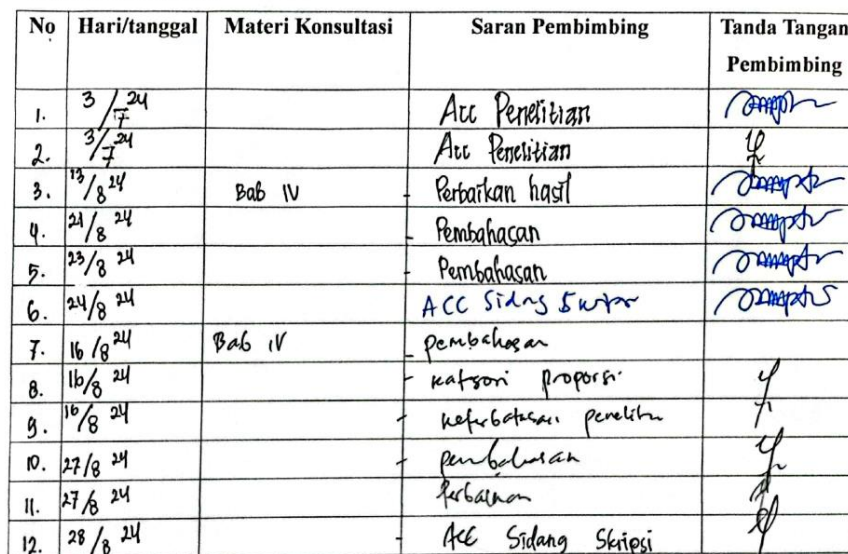 No Hari/tanggal Materi Konsultasi Saran Pembimbing Tanda Tangan
Pembimbing
1. 3/7 24 Acc Penelitian
2. 3/7 24 Acc Penelitian
3. 13/8 24 Bab IV - Perbaikan hasil
4. 21/8 24 - Pembahasan
5. 23/8 24 - Pembahasan
6. 24/8 24 ACC Sidang
7. 16/8 24 Bab IV - pembahasan
8. 16/8 24 - kategori proporsi
9. 16/8 24 - keterbatasan
10. 27/8 24 - pembahasan
11. 27/8 24 Perbaikan
12. 28/8 24 - Acc Sidang Skripsi